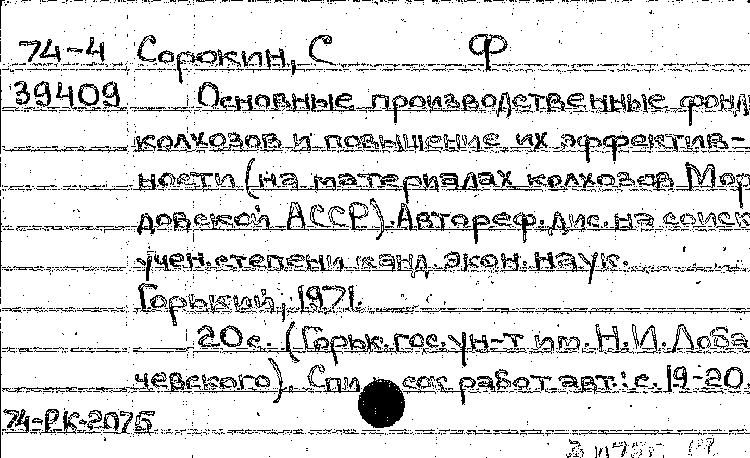 74-4 Сорокин, С Ф
39409 Основные производственные фонд
колхозов и повышение их эффектив-
ности (на материалах колхозов Мор
довской АССР). Автореф. дис. на соиск
учен. степени канд. экон. наук.
Горький, 1971.
20 с. (Горьк. гос. ун-т им. Н.И. Лоба
чевского). Список работ авт.: с. 19-20.
74-РК-2075